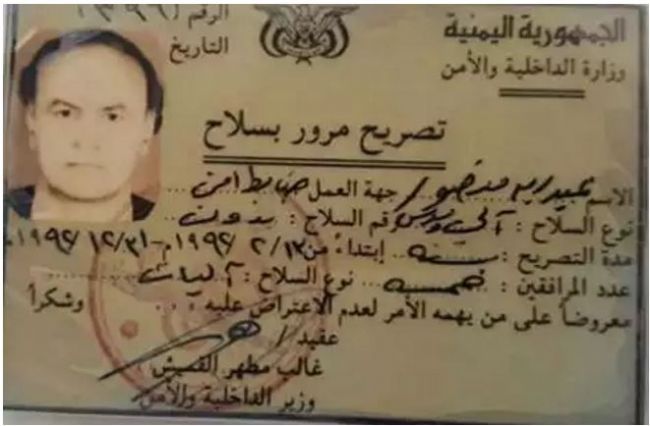 الجمهورية اليمنية
وزارة الداخلية والأمن
الرقم /
التاريخ
تصريح مرور بسلاح
الاسم عبدربه منصور / جهة العمل ضابط امن
نوع السلاح : آلي رقم السلاح : بدون
مدة التصريح : سنة إبتداءً من ٢/١٣ /١٩٩٤م - ١٢/٣١ /١٩٩٤م
عدد المرافقين : خمسة نوع السلاح : آليات
معروضاً على من يهمه الأمر لعدم الاعتراض عليه : . . وشكراً
عقيد /
غالب مطهر القمش
وزير الداخلية والأمن